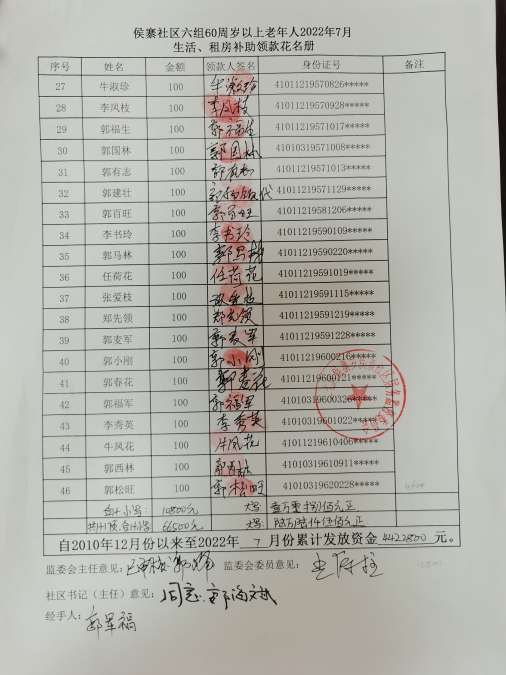 侯寨社区六组60周岁以上老年人2022年7月
生活、租房补助领款花名册
序号 姓名 金额 领款人签名 身份证号 备注
27 牛淑珍 100 牛淑珍 41011219570826*****
28 李凤枝 100 李凤枝 41011219570928*****
29 郭福生 100 郭福生 41011219571017*****
30 郭国林 100 郭国林 41010319571008*****
31 郭有志 100 郭有志 41011219571013*****
32 郭建壮 100 41011219571129*****
33 郭百旺 100 郭百旺 41011219581206*****
34 李书玲 100 李书玲 41011219590109*****
35 郭马林 100 郭马林 41011219590220*****
36 任荷花 100 任荷花 41011219591019*****
37 张爱枝 100 张爱枝 41011219591115*****
38 郑先领 100 郑先领 41011219591219*****
39 郭麦军 100 郭麦军 41011219591228*****
40 郭小刚 100 郭小刚 41011219600216*****
41 郭春花 100 郭春花 41011219600121*****
42 郭福军 100 郭福军 41010319600326*****
43 李秀英 100 李秀英 41010319601022*****
44 牛凤花 100 牛凤花 41011219610406*****
45 郭西林 100 郭西林 41010319610911*****
46 郭松旺 100 郭松旺 41010319620228*****
10800元 大写 壹万零捌佰元正
66500元 大写 陆万陆仟伍佰元正
自2010年12月份以来至2022年 7 月份累计发放资金 4422800 元。
监委会主任意见: 监委会委员意见:
社区书记(主任)意见: 同意
经手人:
郭军福